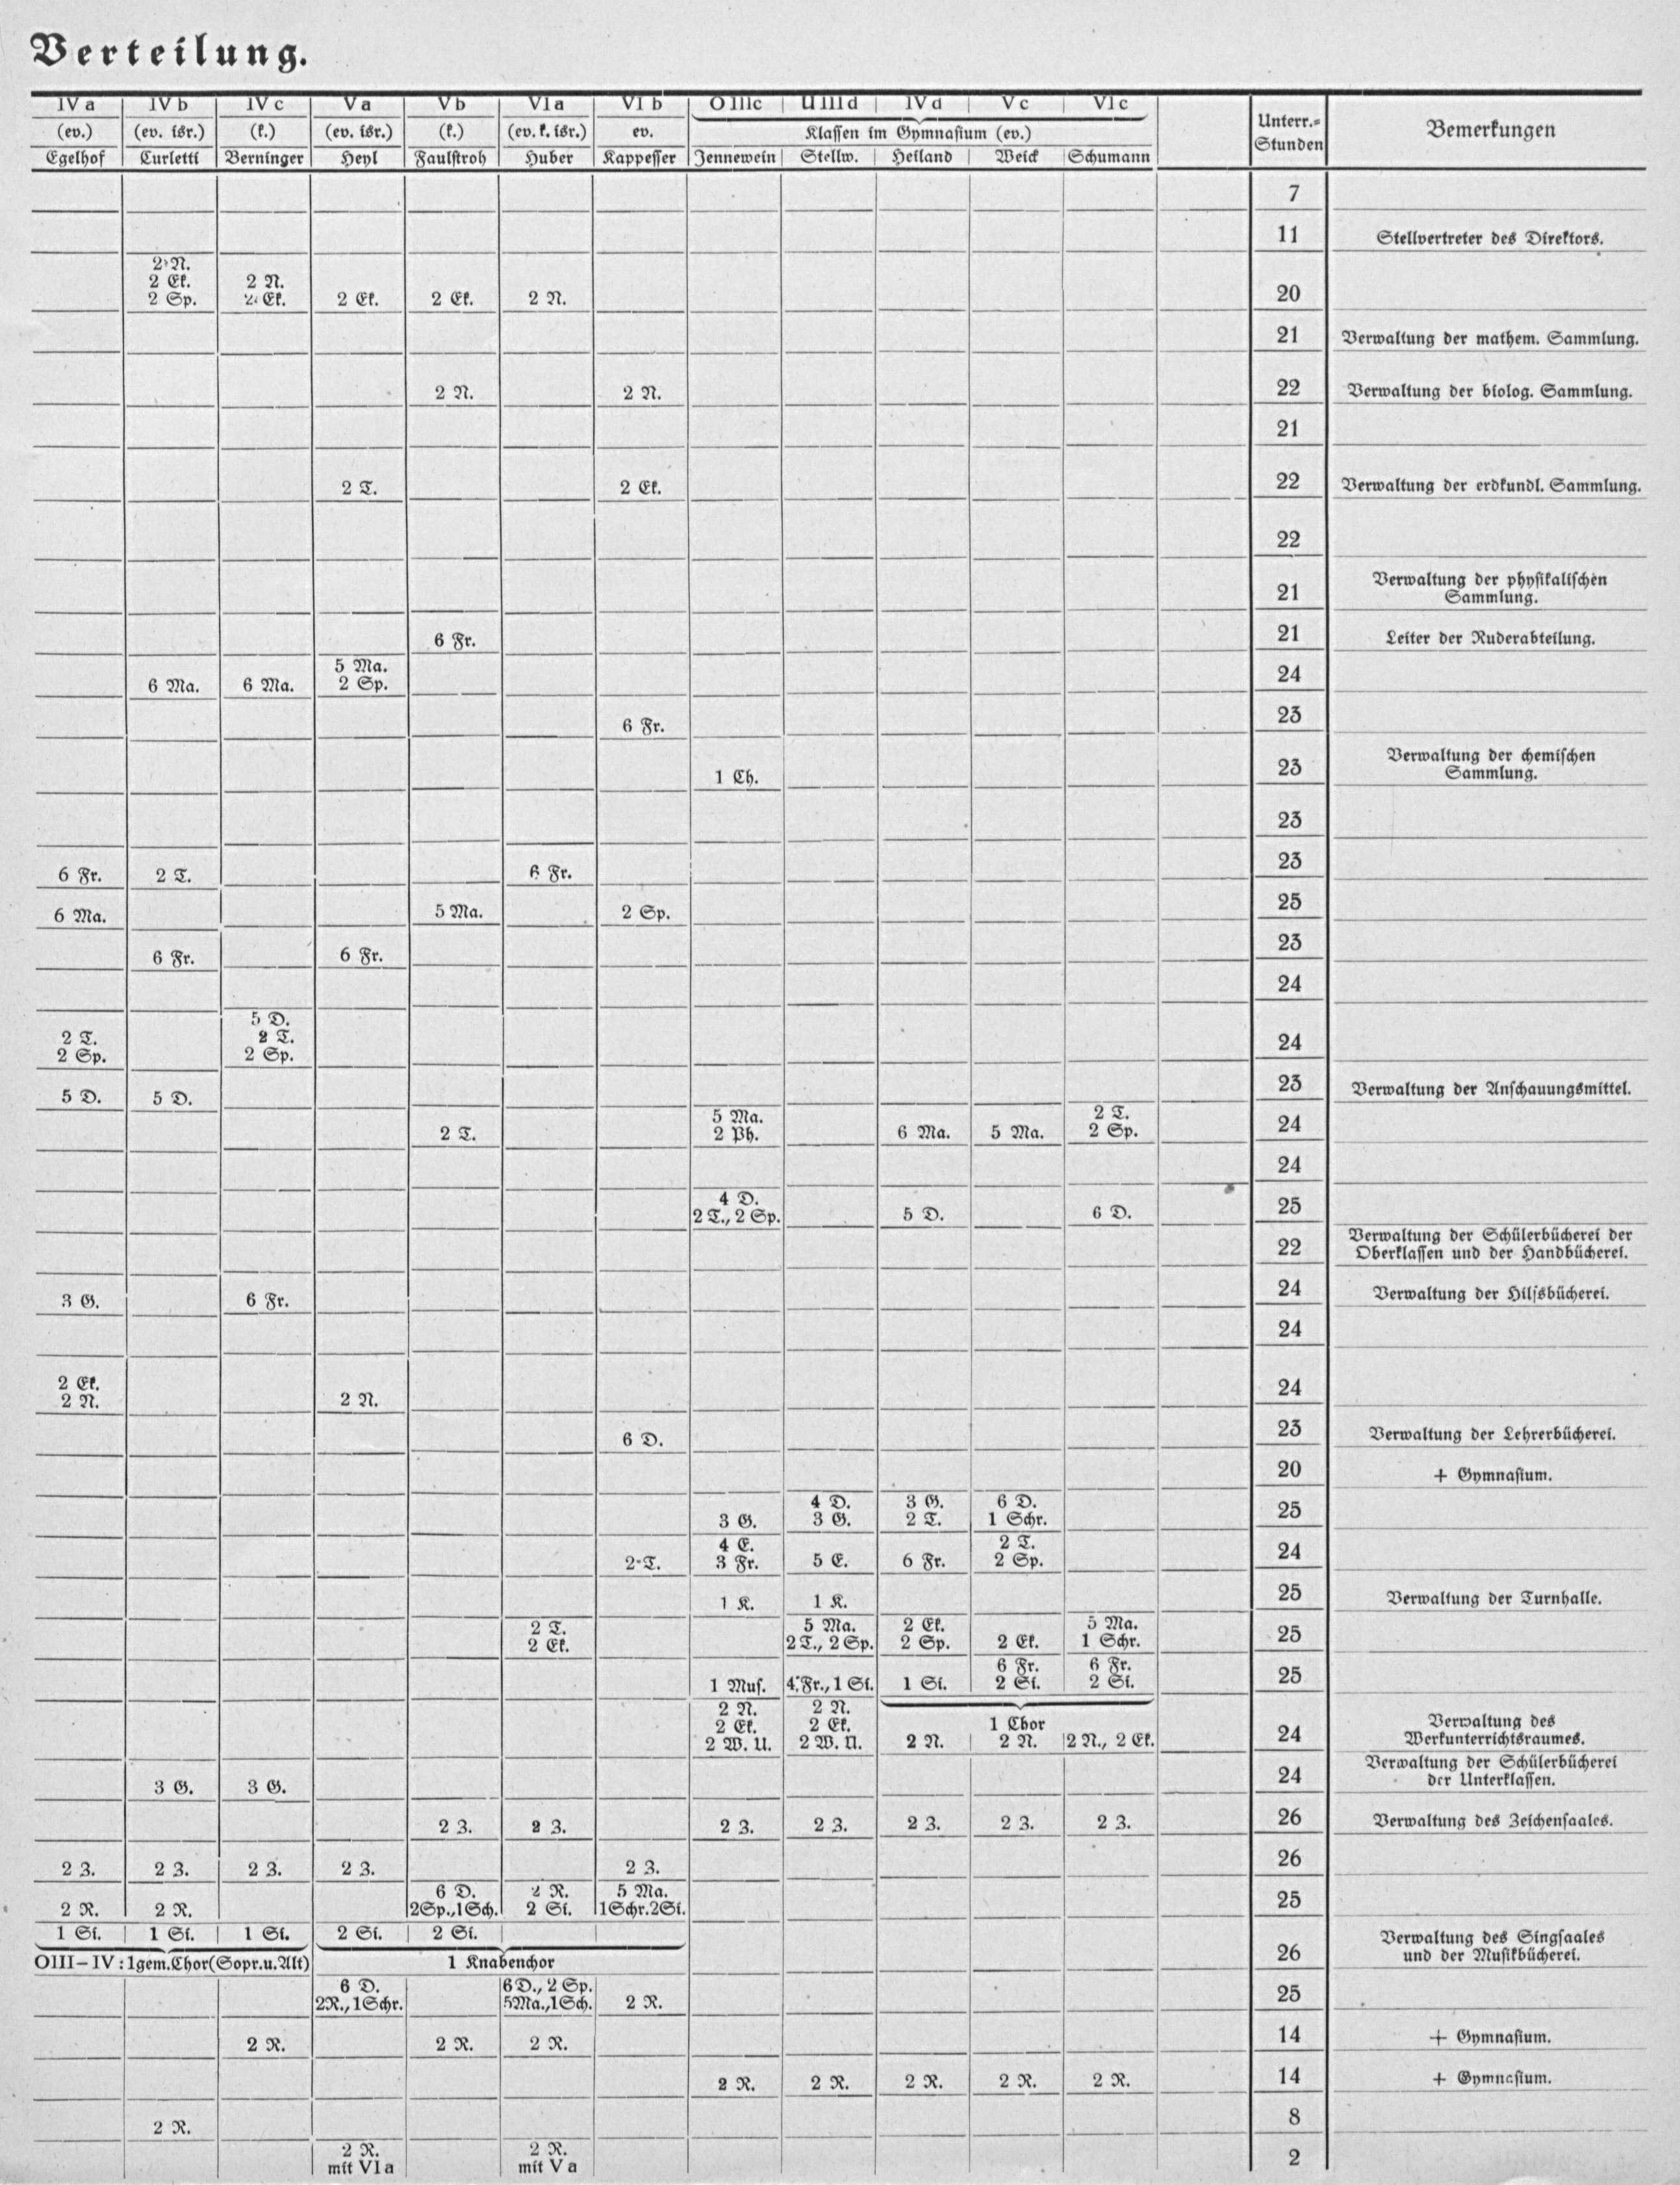 Verteilung.
IVa IVb IVc Va Vb VIa VIb OIIIc UIIId IVd Vc VIc
(ev.) (ev. isr.) (k.) (ev. isr.) (k.) (ev. k. isr.) ev. Klassen im Gymnasium (ev.) Unterr.-Stunden Bemerkungen
Egelhof Curletti Berninger Heyl Faulstroh Huber Kappesser Jennewein Stellw. Heiland Weick Schumann
7
11 Stellvertreter des Direktors.
2 N.
2 Ek. 2 N.
2 Sp. 2 Ek. 2 Ek. 2 Ek. 2 N. 20
21 Verwaltung der mathem. Sammlung.
2 N. 2 N. 22 Verwaltung der biolog. Sammlung.
21
2 T. 2 Ek. 22 Verwaltung der erdkundl. Sammlung.
22
21 Verwaltung der physikalischen
Sammlung.
6 Fr. 21 Leiter der Ruderabteilung.
5 Ma.
6 Ma. 6 Ma. 2 Sp. 24
6 Fr. 23
1 Ch. 23 Verwaltung der chemischen
Sammlung.
23
6 Fr. 2 T. 6 Fr. 23
6 Ma. 5 Ma. 2 Sp. 25
6 Fr. 6 Fr. 23
24
5 D.
2 T. 2 T.
2 Sp. 2 Sp. 24
5 D. 5 D. 23 Verwaltung der Anschauungsmittel.
5 Ma. 2 T.
2 T. 2 Ph. 6 Ma. 5 Ma. 2 Sp. 24
24
4 D.
2 T., 2 Sp. 5 D. 6 D. 25
22 Verwaltung der Schülerbücherei der
Oberklassen und der Handbücherei.
3 G. 6 Fr. 24 Verwaltung der Hilfsbücherei.
24
2 Ek.
2 N. 2 N. 24
6 D. 23 Verwaltung der Lehrerbücherei.
20 + Gymnasium.
4 D. 3 G. 6 D.
3 G. 3 G. 2 T. 1 Schr. 25
4 E. 2 T.
2 T. 3 Fr. 5 E. 6 Fr. 2 Sp. 24
1 K. 1 K. 25 Verwaltung der Turnhalle.
2 T. 5 Ma. 2 Ek. 5 Ma.
2 Ek. 2 T., 2 Sp. 2 Sp. 2 Ek. 1 Schr. 25
6 Fr. 6 Fr.
1 Mus. 4 Fr., 1 Si. 1 Si. 2 Si. 2 Si. 25
2 N. 2 N.
2 Ek. 2 Ek. 1 Chor
2 W. U. 2 W. U. 2 N. 2 N. 2 N., 2 Ek. 24 Verwaltung des
Werkunterrichtsraumes.
3 G. 3 G. 24 Verwaltung der Schülerbücherei
der Unterklassen.
2 Z. 2 Z. 2 Z. 2 Z. 2 Z. 2 Z. 2 Z. 26 Verwaltung des Zeichensaales.
2 Z. 2 Z. 2 Z. 2 Z. 2 Z. 26
6 D. 2 R. 5 Ma.
2 R. 2 R. 2Sp.,1Sch. 2 Si. 1Schr.2Si. 25
1 Si. 1 Si. 1 Si. 2 Si. 2 Si. 26 Verwaltung des Singsaales
und der Musikbücherei.
OIII–IV: 1gem.Chor(Sopr.u.Alt) 1 Knabenchor
6 D. 6D., 2 Sp.
2R.,1Schr. 5Ma.,1Sch. 2 R. 25
2 R. 2 R. 2 R. 14 + Gymnasium.
2 R. 2 R. 2 R. 2 R. 2 R. 14 + Gymnasium.
2 R. 8
2 R. 2 R.
mit VIa mit Va 2